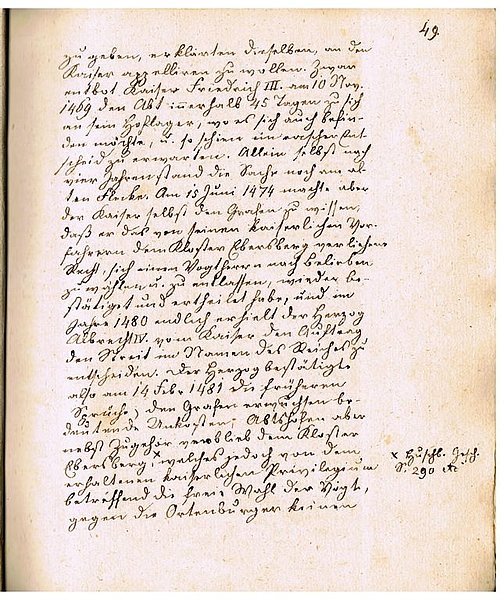 49
zu geben, erklärten dieselben, an den
Kaiser appelliren zu wollen. Zwar
entbot Kaiser Friedrich III. am 10 Nov.
1469 den Abt innerhalb 45 Tagen zu sich
an sein Hoflager, wo es sich auch befin-
den möchte, u. so schien ein rascher Ent-
scheid zu erwarten. Allein selbst nach
vier Jahren stand die Sache noch am al-
ten Flecke. Am 15 Juni 1474 machte aber
der Kaiser selbst den Grafen zu wissen,
daß er das von seinen kaiserlichen Vor-
fahrern dem Kloster Ebersberg verliehene
Recht, sich einen Vogtherrn nach Belieben
zu wählen u. zu entlassen, wieder be-
stätiget und ertheilet habe, und im
Jahre 1480 endlich erhielt der Herzog
Albrecht IV. vom Kaiser den Auftrag
den Streit im Namen des Reiches zu
entscheiden. Der Herzog bestätigte
also am 14 Febr 1481 die früheren
Sprüche; den Grafen erwuchsen be-
deutende Unkosten; Abtshofen aber
nebst Zugehör verblieb dem Kloster
Ebersberg, x welches jedoch von dem
erhaltenen kaiserlichen Privilegium
betreffend die freie Wahl der Vögte,
gegen die Ortenburger keinen
x Huschb. Gesch.
S. 290 etc